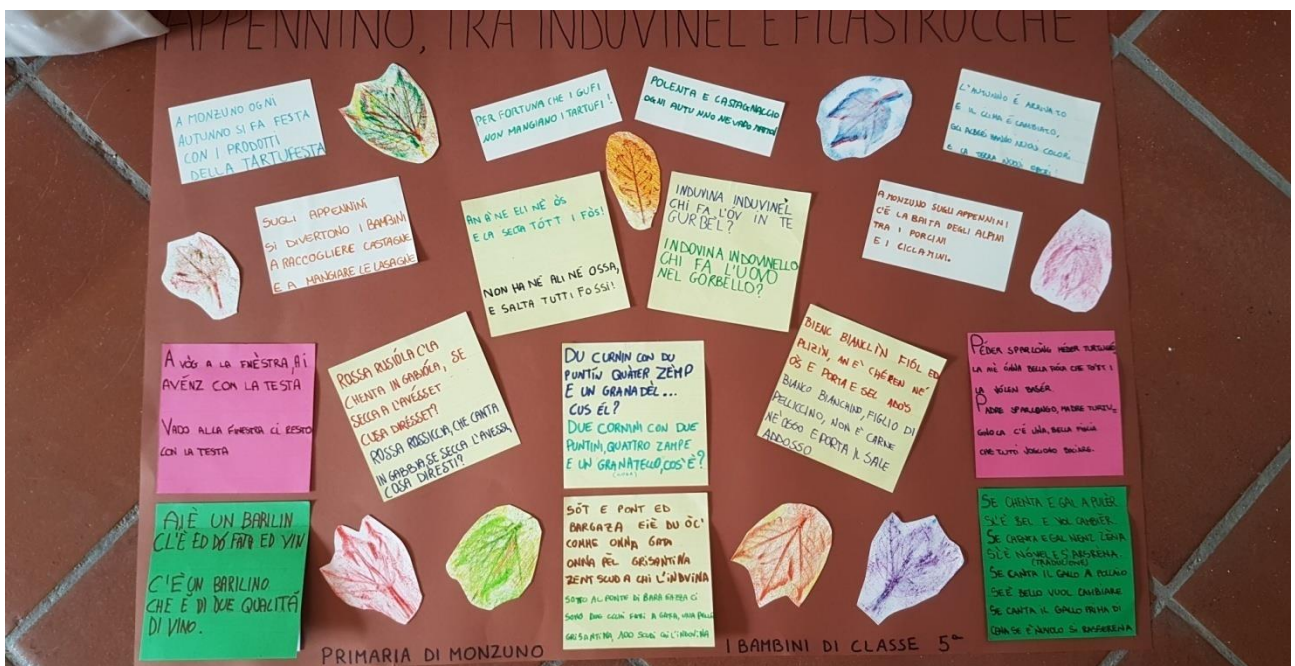 APPENNINO, TRA INDUVINEL E FILASTROCCHE
A MONZUNO OGNI
AUTUNNO SI FA FESTA
CON I PRODOTTI
DELLA TARTUFESTA
PER FORTUNA CHE I GUFI
NON MANGIANO I TARTUFI!
POLENTA E CASTAGNACCIO
OGNI AUTUNNO NE VADO
L'AUTUNNO È ARRIVATO
E IL CLIMA È CAMBIATO,
GLI ALBERI HANNO NUOVI COLORI
E LA TERRA NUOVI
SUGLI APPENNINI
SI DIVERTONO I BAMBINI
A RACCOGLIERE CASTAGNE
E A MANGIARE LE LASAGNE
AN À NE ELI NÈ ÒS
E LA SELTA TÓTT I FÒS!
NON HA NÉ ALI NÉ OSSA,
E SALTA TUTTI FOSSI!
INDUVINA INDUVINÈL
CHI FA L'ÓV IN TE
GURBÈL?
INDOVINA INDOVINELLO
CHI FA L'UOVO
NEL GORBELLO?
A MONZUNO SUGLI APPENNINI
C'È LA BAITA DEGLI ALPINI
TRA I PORCINI
E I CICLAMINI.
A VÒG A LA FNÈSTRA, AI
AVÉNZ CON LA TESTA
VADO ALLA FINESTRA CI RESTO
CON LA TESTA
ROSSA RUSIÓLA C'LA
CHENTA IN GABIÓLA, SE
SECCA A L'AVÉSSET
CUSA DIRÉSSET?
ROSSA ROSSICCIA, CHE CANTA
IN GABBIA, SE SECCA L'AVESSI,
COSA DIRESTI?
DU CURNIN CON DU
PUNTIN QUATER ZEMP
E UN GRANADÈL...
CUS ÉL?
DUE CORNINI CON DUE
PUNTINI, QUATTRO ZAMPE
E UN GRANATELLO, COS'È?
BIENC BIANCLÌN FIGÓL ED
PLIZIN, AN È CHÉREN NÉ
ÒS E PORTA E SEL ADÒS
BIANCO BIANCHINO, FIGLIO DI
PELLICCINO, NON È CARNE
NE' OSSO E PORTA IL SALE
ADDOSSO
PÉDER SPARLÓNG MEDER
LA N'È ÓNNA BELLA CHE TÓTT I
LA VÓLEN BASÉR
PADRE SPARLUNGO, MADRE
C'È UNA BELLA FIGLIA
CHE TUTTI VOGLIONO BACIARE.
AI È UN BARILIN
CL'È ED DÓ FATA ED VIN
C'È UN BARILINO
CHE È DI DUE QUALITÁ
DI VINO.
SÓT E PONT ED
BARGAZA EIÈ DU ÒC'
COMME ONNA GATA
ONNA PÈL GRISANTINA
ZENT SCUD A CHI L'INDVINA
SOTTO AL PONTE DI CI
SONO DUE OCCHI A GATA, UNA PELLE
GRISANTINA, 100 SCUDI CHI L'INDOVINA
SE CHENTA E GAL A PULÈR
SL'È BEL E VOL CAMBIÈR
SE CHENTA E GAL NENZ ZENA
SL'È NÓVEL E S'ARSRENA.
(TRADUZIONE)
SE CANTA IL GALLO A POLLAIO
SE È BELLO VUOL CAMBIARE
SE CANTA IL GALLO PRIMA DI
CENA SE È NUVOLO SI RASSERENA
PRIMARIA DI MONZUNO
I BAMBINI DI CLASSE 5ª